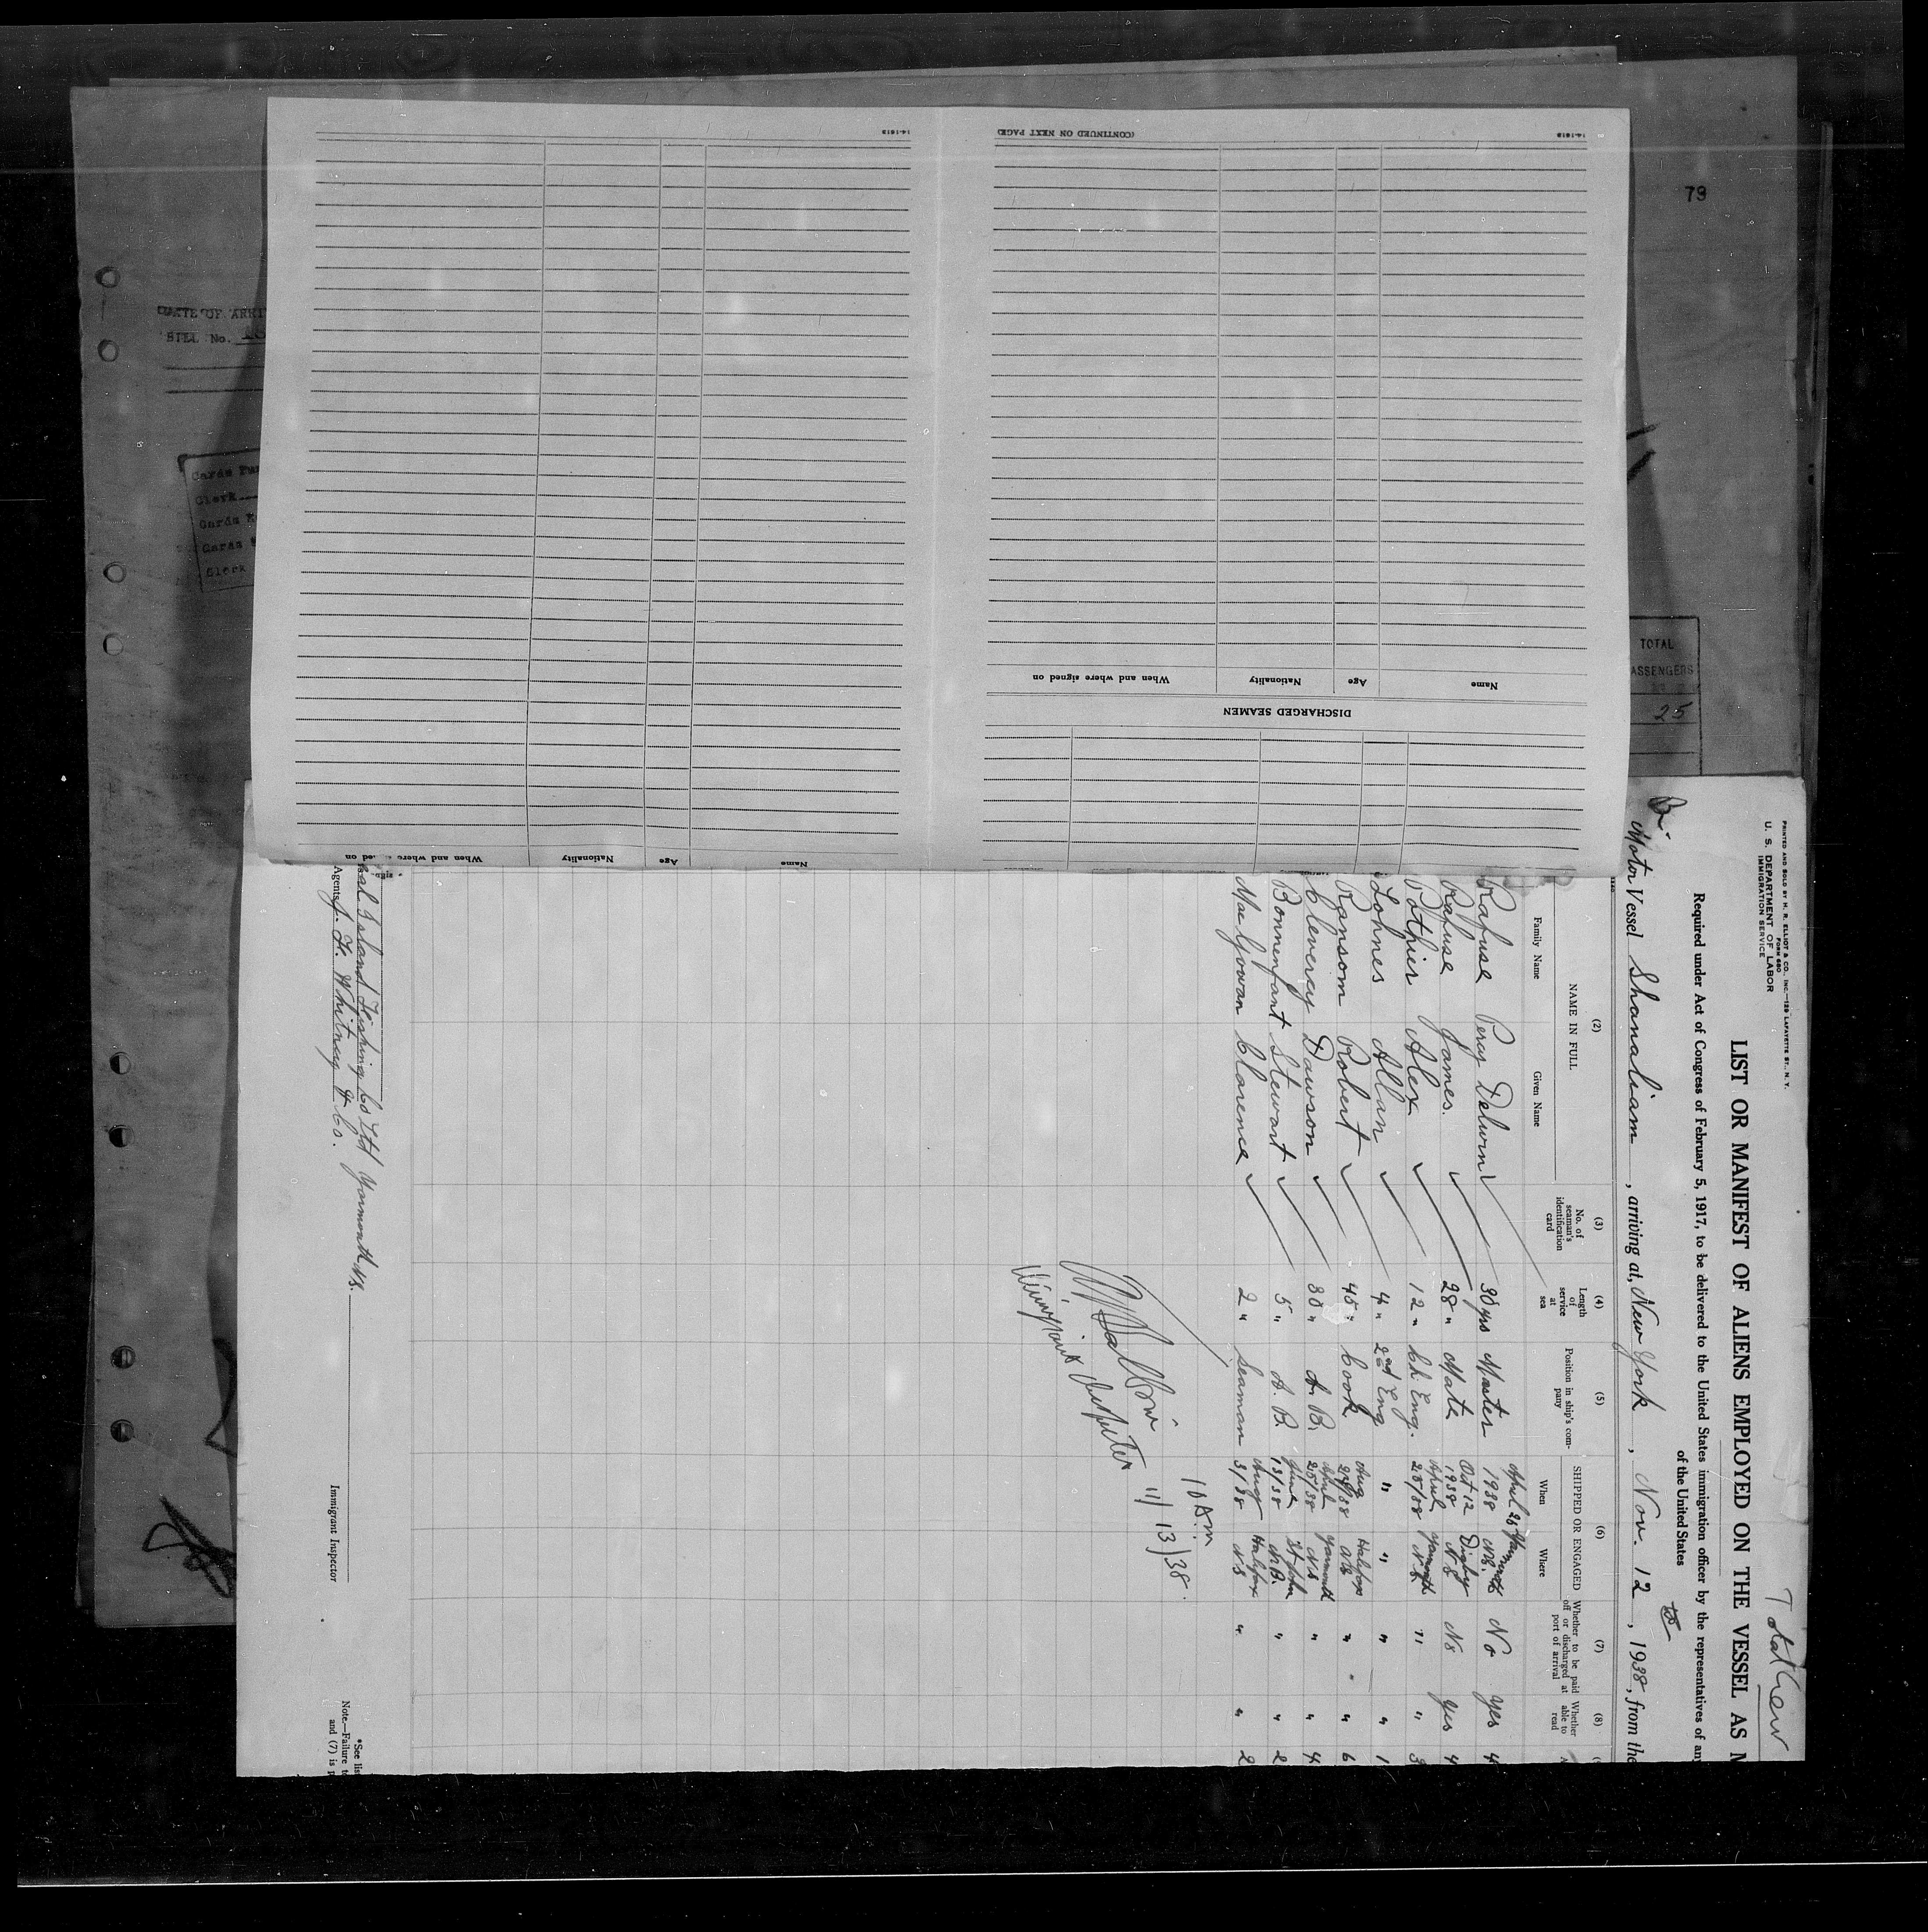 79
DATE OF ARRI
BILL No.
Cards Pun
Clerk
Cards
Cards
Clerk
TOTAL
ASSENGERS
25
14-1618
(CONTINUED ON NEXT PAGE)
14-1618
Name
Age
Nationality
When and where signed on
DISCHARGED SEAMEN
Name
Age
Nationality
When and where signed on
Total Crew
PRINTED AND SOLD BY H. R. ELLIOT & CO., INC.—129 LAFAYETTE ST., N. Y.
FORM 680
U. S. DEPARTMENT OF LABOR
IMMIGRATION SERVICE
LIST OR MANIFEST OF ALIENS EMPLOYED ON THE VESSEL AS M
Required under Act of Congress of February 5, 1917, to be delivered to the United States immigration officer by the representatives of any
of the United States
Br.
Motor Vessel Shanalian, arriving at, New York, Nov. 12, 1938, from the
(2) (3) (4) (5) (6) (7) (8)
NAME IN FULL
Family Name Given Name
No. of seaman's identification card
Length of service at sea
Position in ship's company
SHIPPED OR ENGAGED
When Where
Whether to be paid off or discharged at port of arrival
Whether able to read
Rafuse Percy Delwin 30 yrs Master April 26 1938 Yarmouth N.S. No yes 4
Rafuse James. 28 " Mate Oct 12 1938 Digby N S No yes 4
Pothier Alex 12 " Ch. Eng. April 25/38 Yarmouth N.S. " " 3
Lohnes Allan 4 " 2nd Eng " " " " 1
Ransom Robert 45 " Cook Aug 24/38 Halifax N.S. " " 6
Cleverey Dawson 30 " A. B. April 25/38 Yarmouth N.S " " 4
Bonnenfant Stewart 5 " A. B. June 13/38 St John N.B. " " 2
MacGowan Clarence 2 " Seaman Aug 3/38 Halifax N S " " 2
10 Am
11/13/38.
Immigrant Inspector
eal Island Fishing Co Ltd Yarmouth N.S.
Agents J. F. Whitney & Co.
Immigrant Inspector
*See lis
Note.—Failure t
and (7) is p